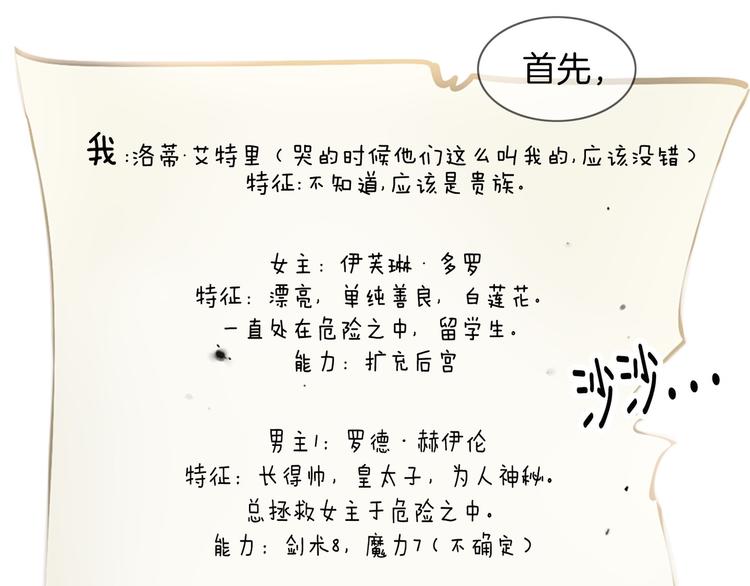 首先，
我：洛蒂·艾特里（哭的时候他们这么叫我的，应该没错）
特征：不知道，应该是贵族。
女主：伊芙琳·多罗
特征：漂亮，单纯善良，白莲花。
一直处在危险之中，留学生。
能力：扩充后宫
沙沙...
男主1：罗德·赫伊伦
特征：长得帅，皇太子，为人神秘。
总拯救女主于危险之中。
能力：剑术8，魔力7（不确定）